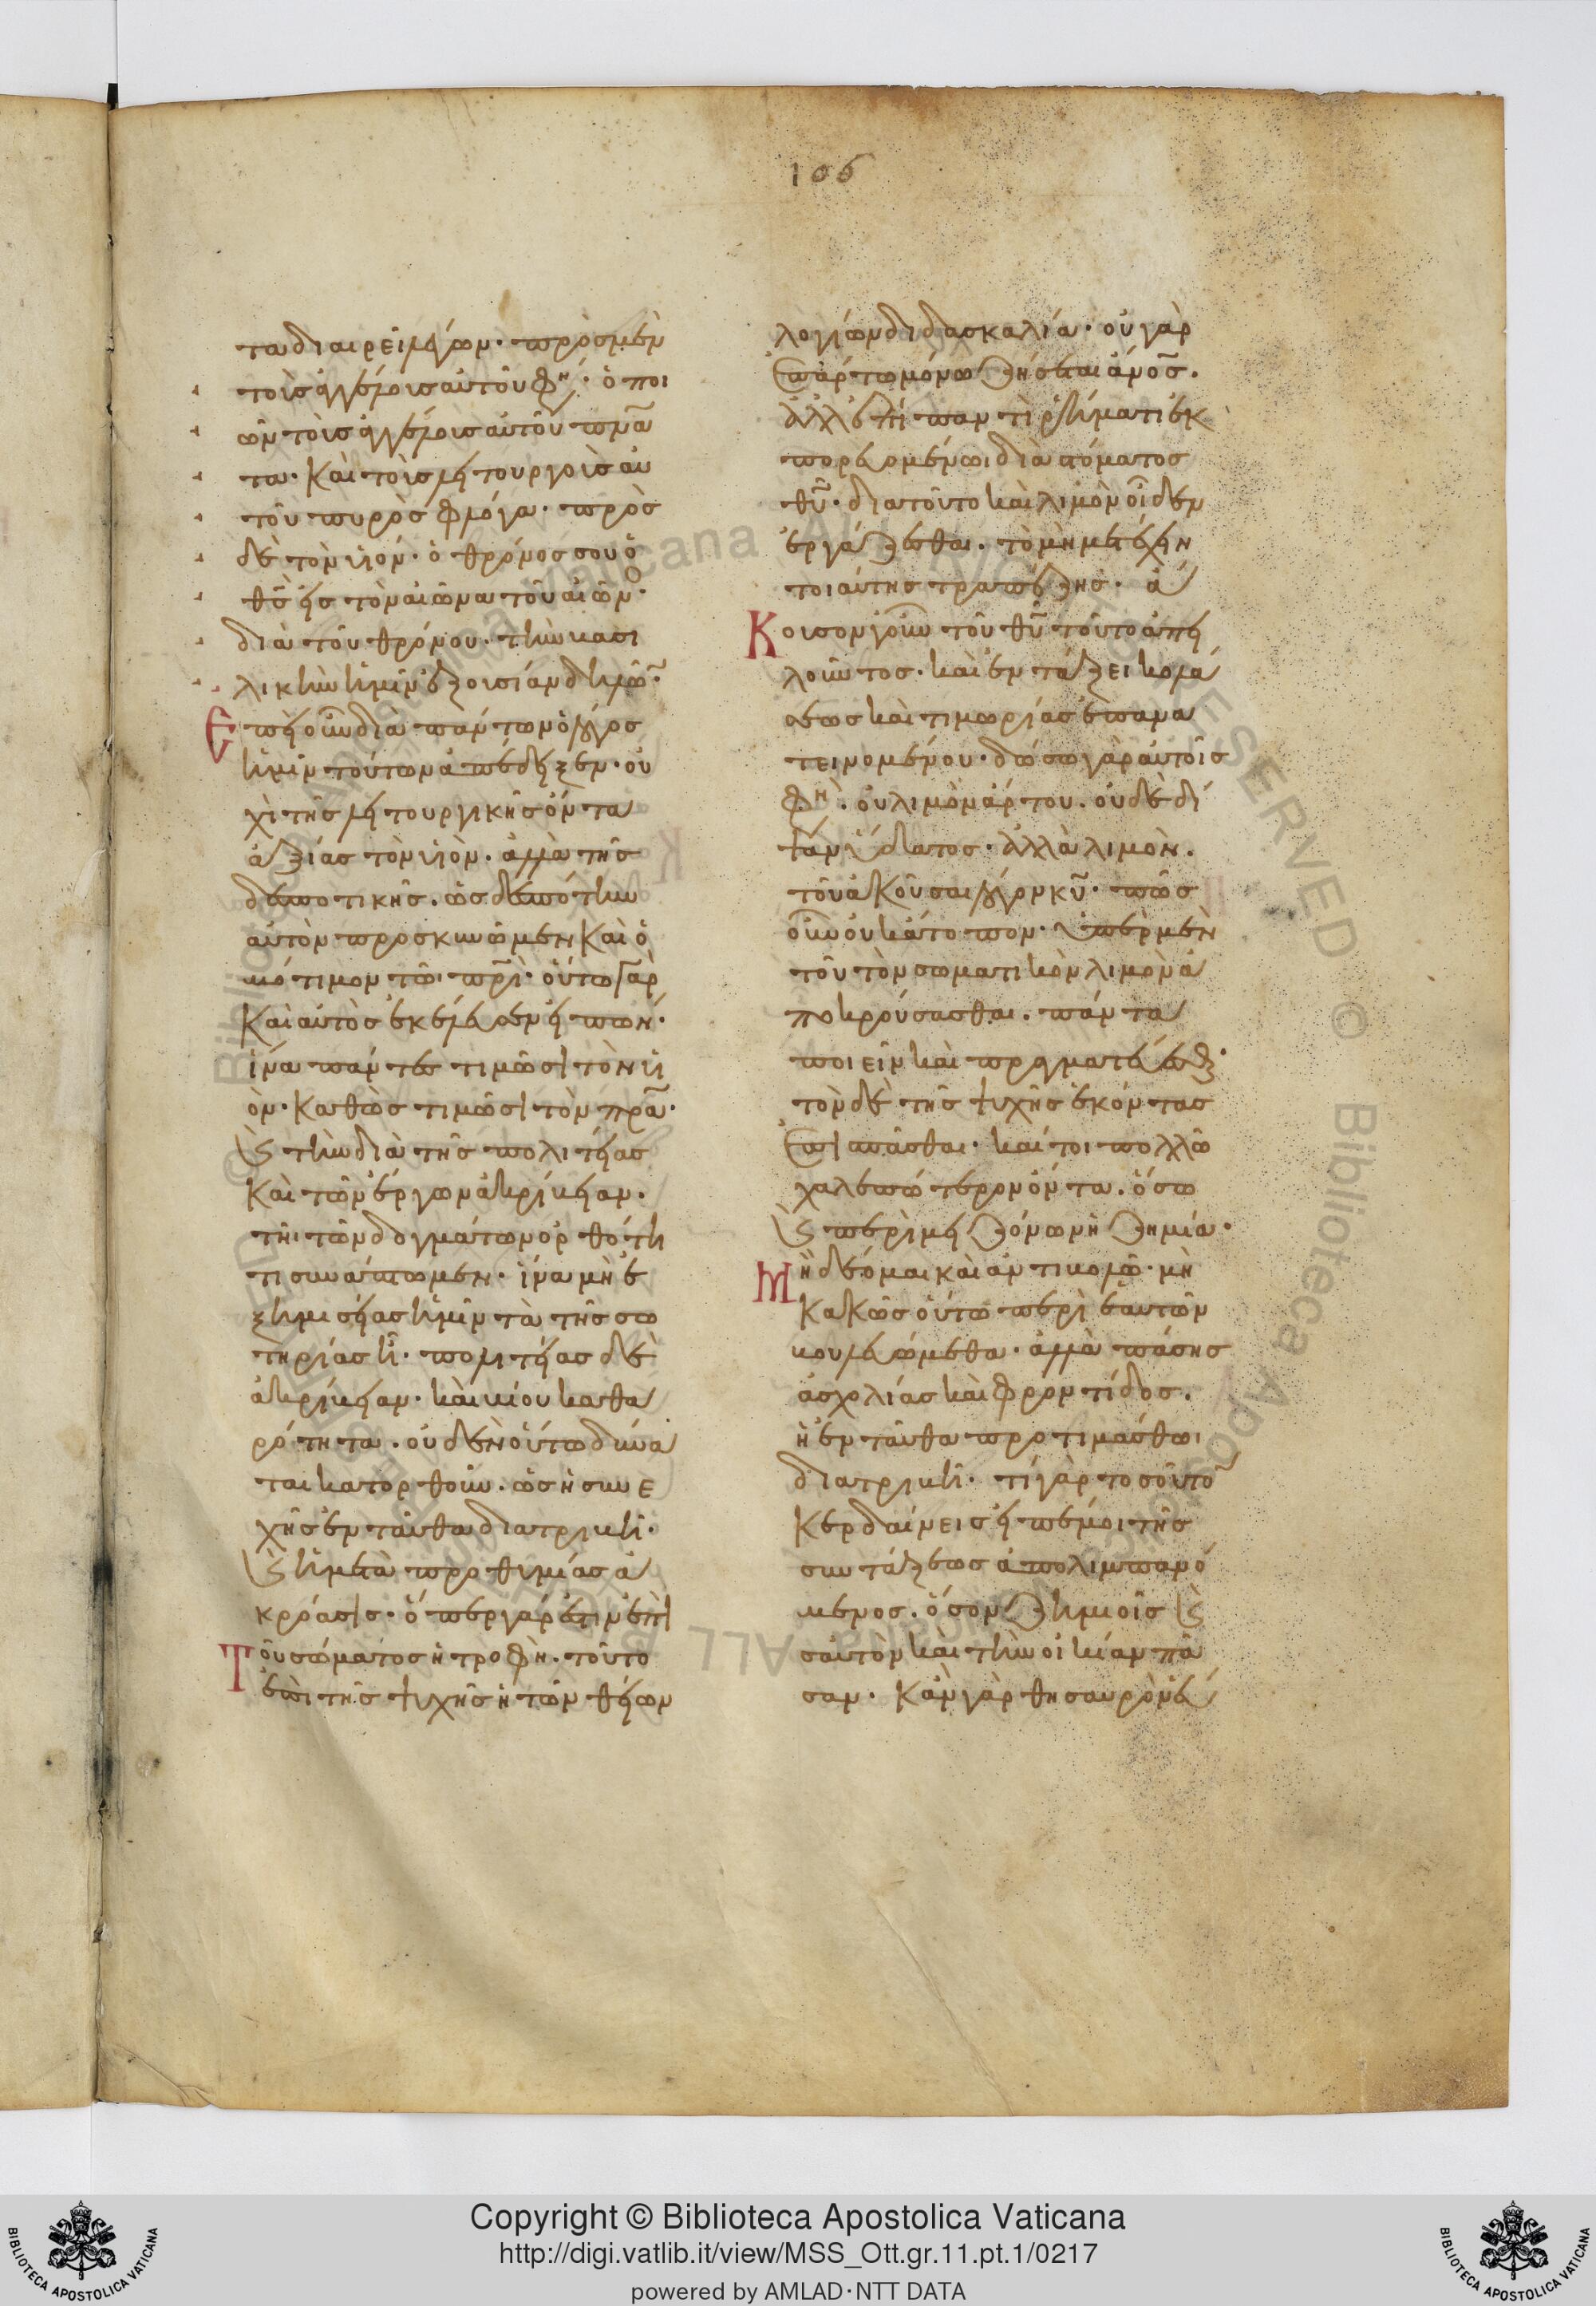 106
τα διαιρεῖ λέγων· πρὸς μὲν
τοὺς ἀγγέλους αὐτοῦ φη· ὁ ποι
ῶν τοὺς ἀγγέλους αὐτοῦ πνα
τα· καὶ τοὺς λειτουργοὺς αὐ
τοῦ πυρὸς φλόγα· πρὸς
δὲ τὸν υἱόν· ὁ θρόνος σου ὁ
θς εἰς τὸν αἰῶνα τοῦ αἰῶν·
διὰ τοῦ θρόνου· τὴν βασι
λικὴν ἡμῖν ἐξουσίαν δηλῶ·
Ἐπεὶ οὖν διὰ πάντων ὁ λόγος
ἡμῖν τούτων ἀπέδειξεν· οὐ
χὶ τῆς λειτουργικῆς ὄντα
ἀξίας τὸν υἱὸν· ἀλλὰ τῆς
δεσποτικῆς· ὡς δεσπότην
αὐτὸν προσκυνῶμεν καὶ ὁ
μότιμον τῶ πρι· οὕτω γὰρ
καὶ αὐτὸς ἐκέλευσεν εἰπών·
ἵνα πάντες τιμῶσι τὸν υἱ
όν· καθὼς τιμῶσι τὸν πρα·
καὶ τὴν διὰ τῆς πολιτείας
καὶ τῶν ἔργων ἀκρίβειαν·
τῆι τῶν δογμάτων ὀρθότη
τι συνάπτωμεν· ἵνα μὴ ἐ
ξ ἡμισείας ἡμῖν τὰ τῆς σω
τηρίας ἦ· πολιτείας δὲ
ἀκρίβειαν· καὶ βίου καθα
ρότητα· οὐδὲν οὕτω δύνα
ται κατορθοῦν· ὡς ἡ συνε
χὴς ἐνταῦθα διατριβὴ·
καὶ ἡ μετὰ προθυμίας ἀ
κρόασις· ὅπερ γάρ ἐστιν ἐπὶ
Τοῦ σώματος ἡ τροφὴ· τοῦτο
ἐπὶ τῆς ψυχῆς ἡ τῶν θείων
λογίων διδασκαλία· οὐ γὰρ
ἐπ' ἄρτω μόνω ζήσεται ἄνος·
ἀλλ' ἐπὶ παντὶ ῥήματι ἐκ
πορευομένωι διὰ στόματος
θυ· διὰ τοῦτο καὶ λιμὸν οἶδεν
ἐργάζεσθαι· τὸ μὴ μετέχειν
τοιαύτης τραπέζης· ἄ
Κουσον γοῦν τοῦ θυ τοῦτο ἀπει
λοῦντος· καὶ ἐν τάξει κολά
σεως καὶ τιμωρίας ἐπανα
τεινομένου· δώσω γὰρ αὐτοῖς
φη· οὐ λιμὸν ἄρτου· οὐδὲ δί
ψαν ὕδατος· ἀλλὰ λιμὸν·
τοῦ ἀκοῦσαι λόγον κυ· πῶς
οὖν οὐκ ἄτοπον· ὑπὲρ μὲν
τοῦ τὸν σωματικὸν λιμὸν ἀ
ποκρούσασθαι· πάντα
ποιεῖν καὶ πραγματεύεσθ·
τὸν δὲ τῆς ψυχῆς ἑκόντας
ἐπισπᾶσθαι· καίτοι πολλῶ
χαλεπώτερον ὄντα· ὅσω
καὶ περὶ μειζόνων ἡ ζημία·
Μὴ δέομαι καὶ ἀντιβολῶ· μὴ
κακῶς οὕτω περὶ ἑαυτῶν
βουλευώμεθα· ἀλλὰ πάσης
ἀσχολίας καὶ φροντίδος·
ἡ ἐνταῦθα προτιμάσθωι
διατριβὴ· τί γὰρ τοσοῦτο
κερδαίνεις εἰπέ μοι τῆς
συντάξεως ἀπολιμπανό
μενος· ὅσον ζημιοῖς καὶ
σαυτὸν καὶ τὴν οἰκίαν πᾶ
σαν· κἂν γὰρ θησαυρὸν εὕ
Copyright © Biblioteca Apostolica Vaticana
http://digi.vatlib.it/view/MSS_Ott.gr.11.pt.1/0217
powered by AMLAD·NTT DATA
BIBLIOTECA APOSTOLICA VATICANA
BIBLIOTECA APOSTOLICA VATICANA